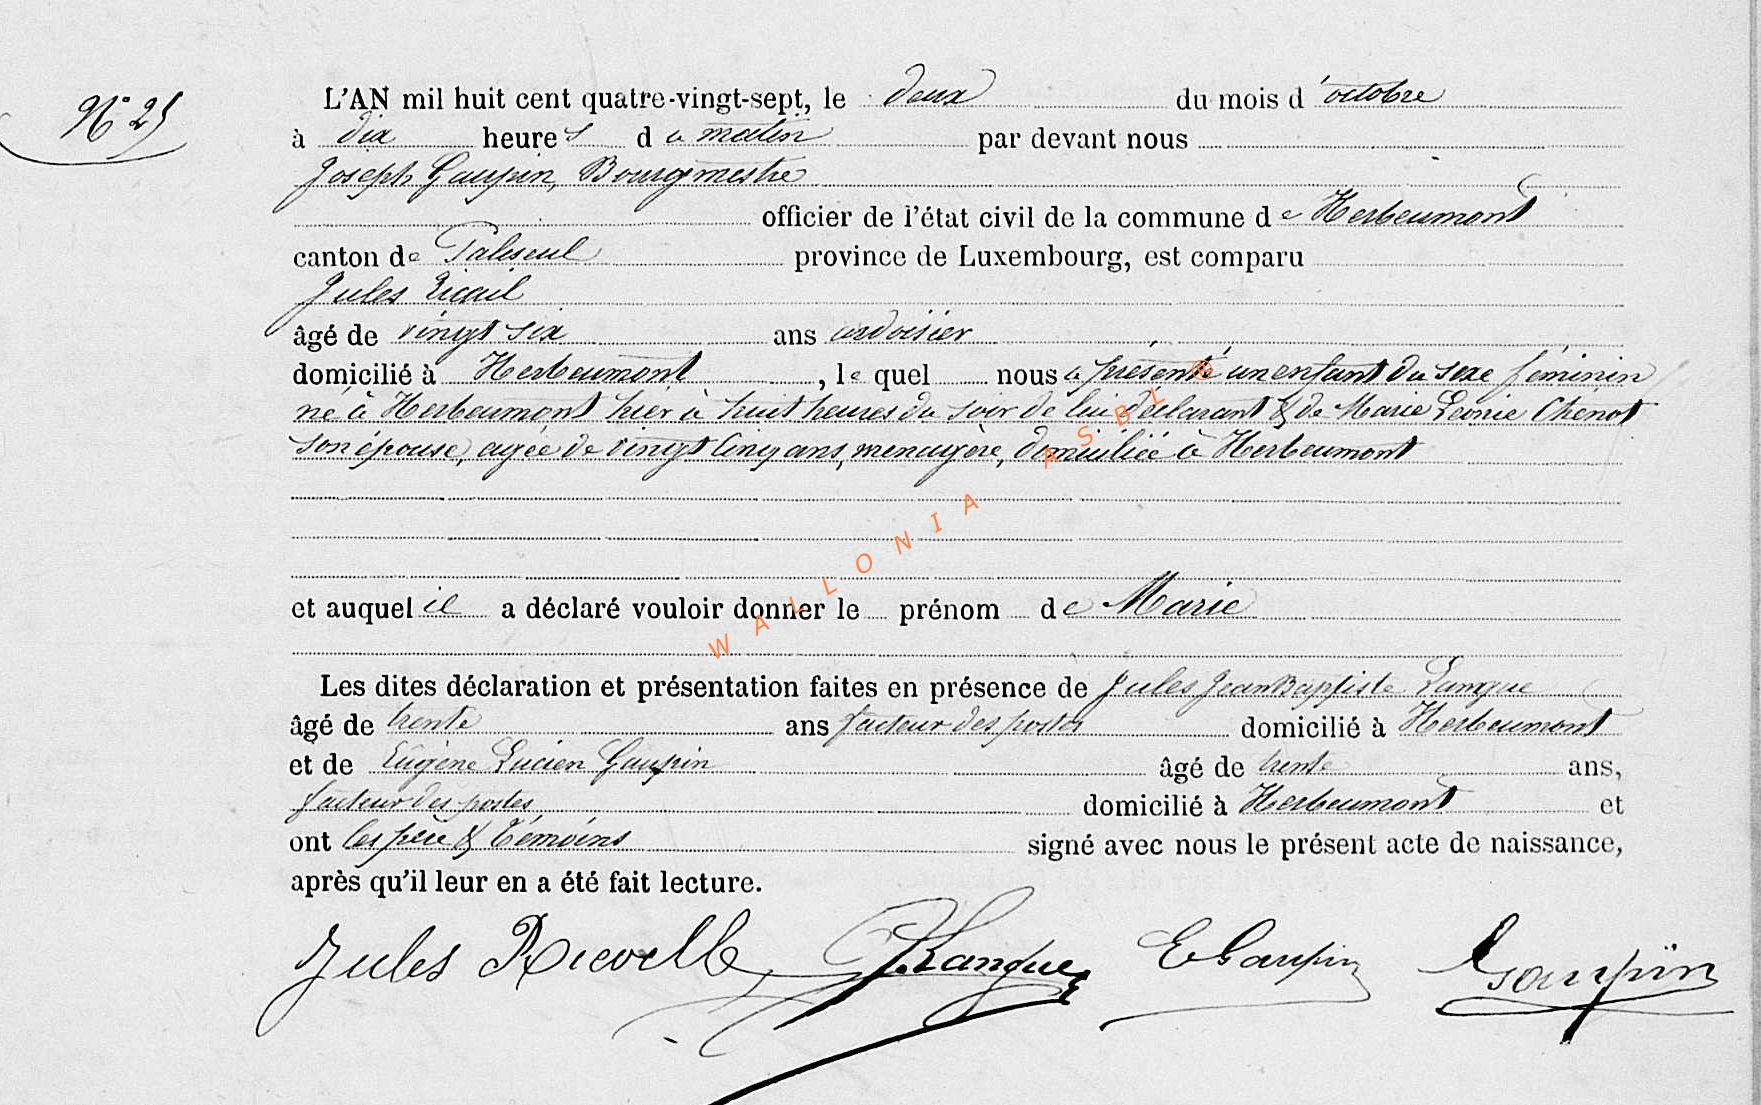 N° 25
L'AN mil huit cent quatre-vingt-sept, le deux du mois d'octobre
à dix heures du matin par devant nous
Joseph Gaupin, Bourgmestre
officier de l'état civil de la commune de Herbeumont
canton de Paliseul province de Luxembourg, est comparu
Jules Ricail
âgé de vingt six ans ardoisier
domicilié à Herbeumont, le quel nous a présenté un enfant du sexe féminin
né à Herbeumont hier à huit heures du soir de lui déclarant & de Marie Léonie Chenot
son épouse, agée de vingt cinq ans, menagère, domiciliée à Herbeumont
et auquel il a déclaré vouloir donner le prénom de Marie
Les dites déclaration et présentation faites en présence de Jules Jean Baptiste Lanque
âgé de trente ans facteur des postes domicilié à Herbeumont
et de Eugène Lucien Gaupin âgé de trente ans,
facteur des postes domicilié à Herbeumont et
ont les père & témoins signé avec nous le présent acte de naissance,
après qu'il leur en a été fait lecture.
Jules Lanque E Gaupin Gaupin
WALLONIA ASBL ©